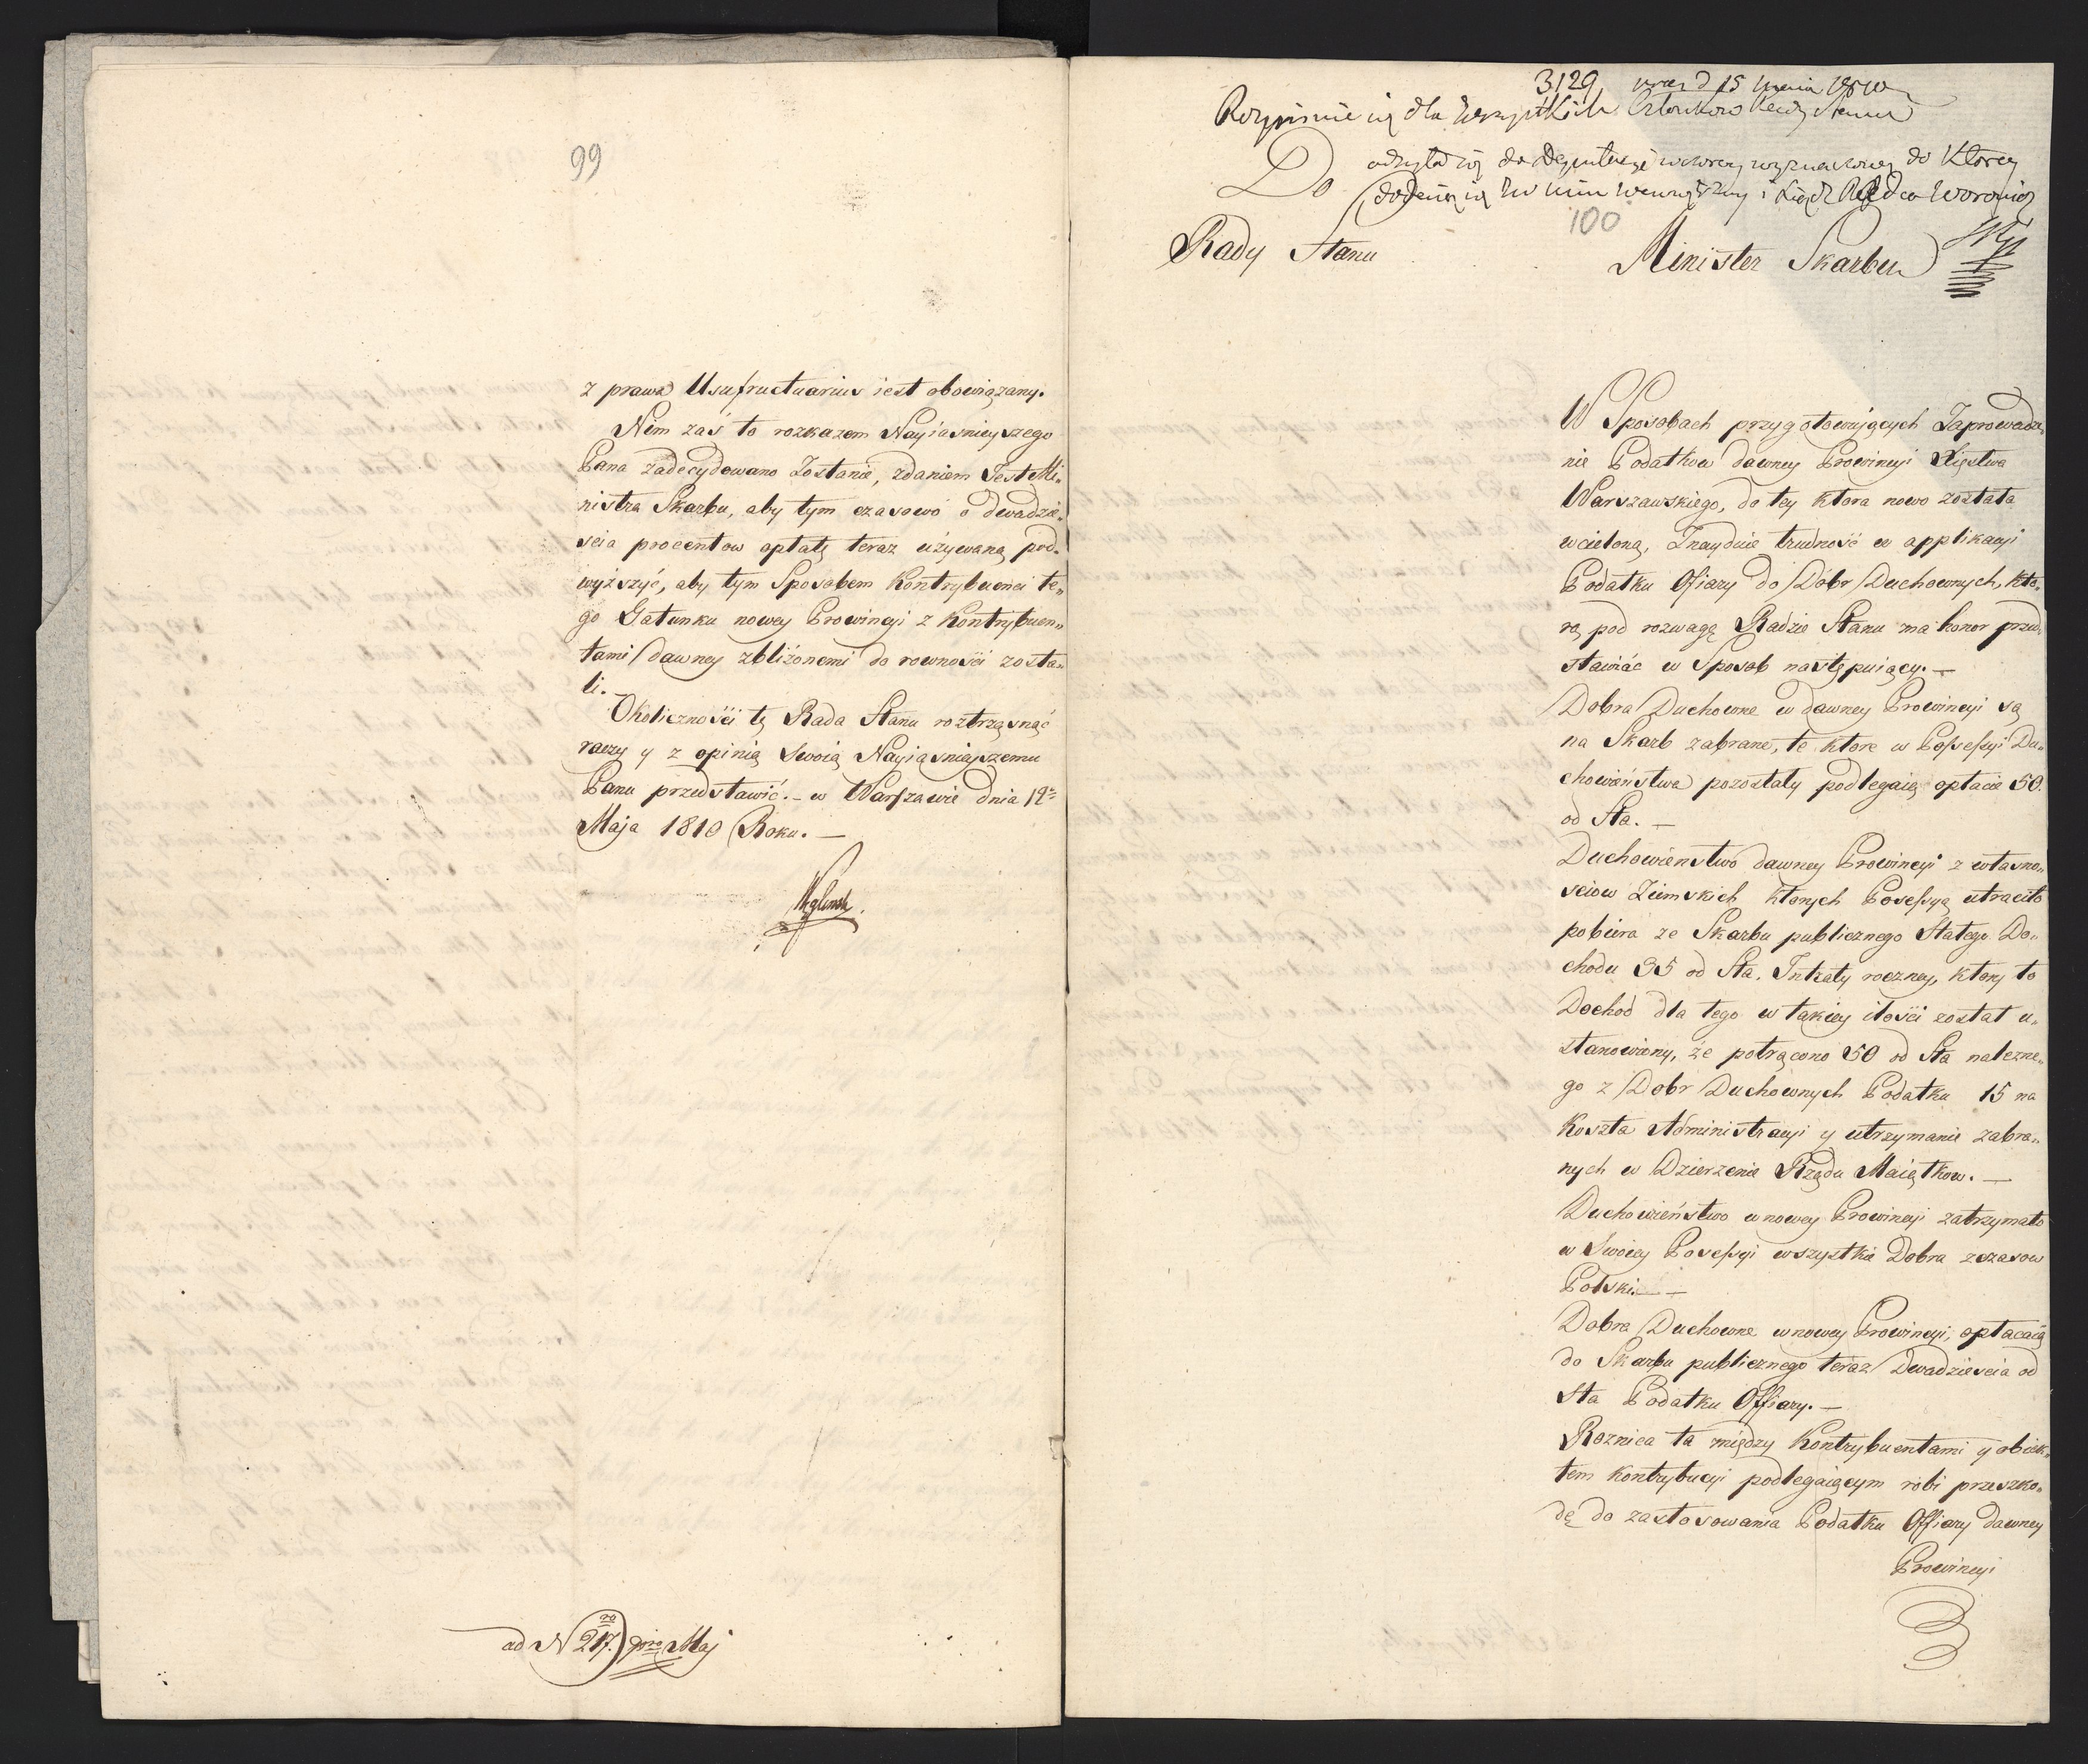 99
z prawa Usufructuarius iest obowiązany.
Nim zaś to rozkazem Nayiasnieyszego
Pana zadecydowano Zostanie, zdaniem Jest Mi„
nistra Skarbu, aby tym czasowo o dwadzie„
scia procentow opłatę teraz używaną pod„
wyższyć, aby tym Sposobem Kontrybuenci te„
go Gatunku nowey Prowincyi z Kontrybuen„
tami dawney zbliżonemi do rowności zosta„
li. —
Okoliczności tę Rada Stanu roztrząsnąć
raczy y z opinią Swoią Nayiasniajszemu
Panu przedstawić. – w Warszawie dnia 12
Maja 1810 Roku. —
ad N 217. pro Maj
3129 15 
Rozpisuie się dla wszystkich Członkow Rady Stanu
odsyła się do Deputacyi do ktorey
Do
100
Rady Stanu
Minister Skarbu
W Sposobach przygotowuiących Zaprowadze„
nie Podatkow dawney Prowincyi Xięstwa
Warszawskiego, do tey ktora nowo została
wcieloną, Znayduie trudność w applikacyi
Podatku Ofiary do Dóbr Duchownych, kto„
rą pod rozwagę Radzie Stanu ma honor przed„
stawiać w Sposob następuiący. —
Dobra Duchowne w dawney Prowincyi są
na Skarb zabrane, te ktore w Possessyi Du„
chowieństwa pozostały podlegaią opłacie 50.
od Sta. —
Duchowienstwo dawney Prowincyi z własno„
sciow Ziemskich ktorych Posessyą utraciło
pobiera ze Skarbu publicznego Stałego Do„
chodu 35 od Sta. Intraty roczney, ktory to
Dochod dla tego w takiey ilości został u„
stanowiony, że potrącono 50 od Sta należne„
go z Dobr Duchownych Podatku 15 na
Koszta Administracyi y utrzymanie zabra„
nych w Dzierzenie Rządu Maiątkow. —
Duchowieństwo w nowey Prowincyi zatrzymało
w Swoiey Posessyi wszystkie Dobra z czasow
Polski. —
Dobra Duchowne w nowey Prowincyi, opłacaią
do Skarbu publicznego teraz Dwadziescia od
Sta Podatku Offiary. —
Roznica ta między Kontrybuentami y obiek„
tem kontrybucyi podlegaiącym robi przeszko„
dę do zastosowania Podatku Offiary dawney
Prowincyi